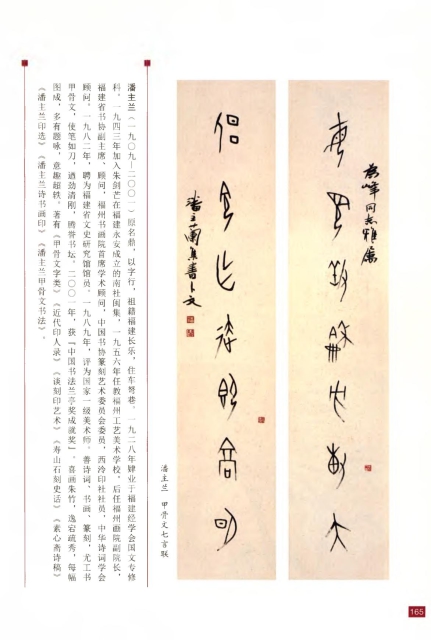 为峰同志雅属
潘主兰集書卜文
潘主兰 甲骨文七言联
潘主兰(一九〇九—二〇〇一)原名鼎,以字行,祖籍福建长乐,住车弩巷。一九二八年肄业于福建经学会国文专修
科。一九四三年加入朱剑芒在福建永安成立的南社闽集,一九五六年任教福州工艺美术学校,后任福州画院副院长,
福建省书协副主席、顾问,福州书画院首席学术顾问,中国书协篆刻艺术委员会委员,西泠印社社员,中华诗词学会
顾问。一九八二年,聘为福建省文史研究馆馆员。一九八九年,评为国家一级美术师。善诗词、书画、篆刻,尤工书
甲骨文,使笔如刀,遒劲清刚,腾誉书坛。二〇〇一年,获“中国书法兰亭奖成就奖”。喜画朱竹,逸宕疏秀,每幅
图成,多有题咏,意趣超轶。著有《甲骨文字类》《近代印人录》《谈刻印艺术》《寿山石刻史话》《素心斋诗稿》
《潘主兰印选》《潘主兰诗书画印》《潘主兰甲骨文书法》。
165